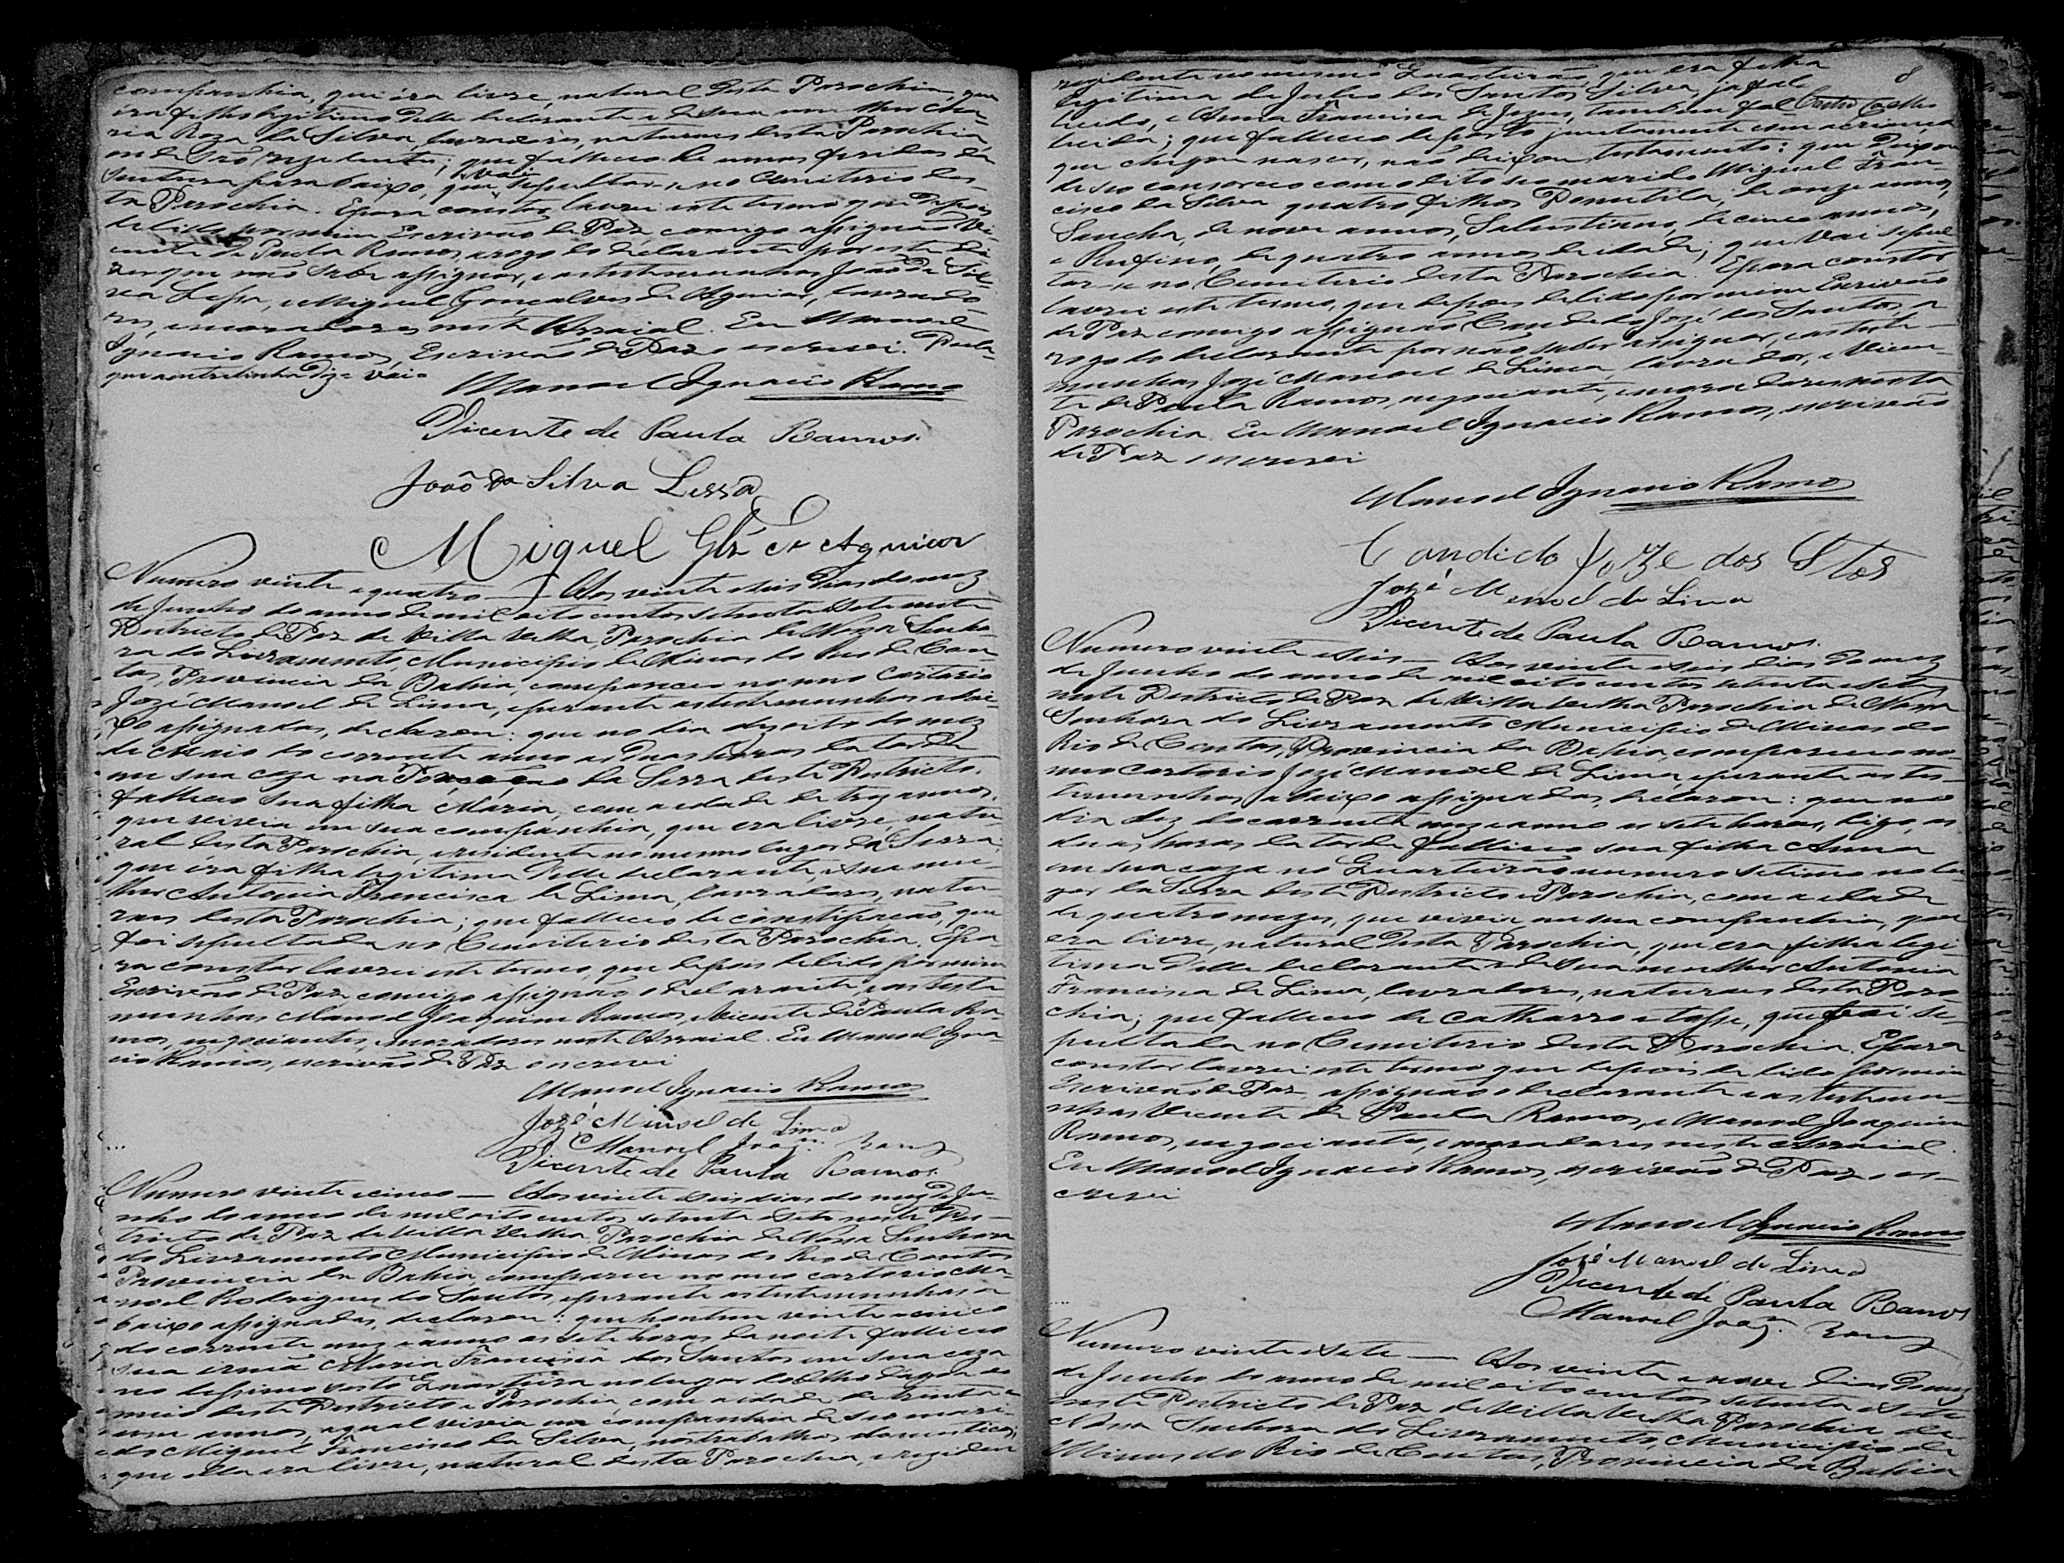 companhia, que éra livre, natural desta Parochia, que
era filho legitimo delle declarante e de sua mulher Ma-
ria Roza da Silva, lavradores, naturaes desta Parochia,
onde são rezidentes; que falleceo de umas feridas da
sintura para baixo, que vai sepultar-se no Cemiterio des-
ta Parochia. E para constar lavrei este termo que depois
de lido por mim Escrivão de Paz, comigo assignão Vi-
cente de Paula Ramos, a rogo do declarante por este di-
zer que não sabe assignar, e as testemunhas João da Sil-
va Lessa, e Miguel Gonçalves de Aguiar, lavrado-
res, e moradores neste Arraial. Eu Manoel
Ignacio Ramos, Escrivão de Paz o escrevi. Decla-
que a entrelinha diz = vai =
Manoel Ignacio Ramos
Vicente de Paula Ramos.
João da Silva Lessa
Miguel Glz de Aguiar
Numero vinte e quatro — Aos vinte e seis dias do mez
de Junho do anno de mil oito centos setenta e sete neste
Districto de Paz de Villa Velha, Parochia de Nossa Senho-
ra do Livramento Municipio de Minas do Rio de Con-
tas, Provincia da Bahia, compareceo no meo Cartorio
José Manoel de Lima, e perante as testemunhas abai-
xo assignadas, declarou: que no dia dezoito do mez
de Maio do corrente anno as duas horas da tarde
em sua caza na da Serra deste Districto,
falleceo sua filha Maria, com a idade de trez annos,
que vivia em sua companhia, que era livre, natu-
ral desta Parochia, e residente no mesmo lugar da Serra,
que éra filha legitima delle declarante, e sua mu-
lher Antonia Francisca de Lima, lavradores, natu-
raes desta Parochia; que falleceo de constipação, que
foi sepultada no Cemiterio desta Parochia. E pa-
ra constar lavrei este termo, que depois de lido por mim
Escrivão de Paz comigo assignão o declarante e as teste-
munhas Manoel Joaquim Ramos, e Vicente de Paula Ra-
mos, negociantes, e moradores neste Arraial. Eu Manoel Igna-
cio Ramos, escrivão de Paz o escrevi
Manoel Ignacio Ramos
José Manoel de Lima
Manoel Joaqm. Ramos
Vicente de Paula Ramos.
Numero vinte e cinco — Aos vinte e seis dias do mez de Ju-
nho do anno de mil oito centos setenta e sete neste Dis-
tricto de Paz de Villa Velha, Parochia de Nossa Senhora
do Livramento Municipio de Minas do Rio de Contas
Provincia da Bahia, compareceu no meo cartorio Ma-
noel Rodrigues dos Santos, e perante as testemunhas a-
baixo assignadas, declarou: que hontem vinte e cinco
do corrente mez e anno as sete horas da noite falleceo
sua irmã Maria Francisca dos Santos em sua caza
no decimo sexto Quarteirão no lugar do Olho d'agoa do
meio deste Districto e Parochia, com a idade de trinta e
um annos, a qual vivia em companhia de seo mari-
do Miguel Francisco da Silva, nos trabalhos domesticos,
que ella era livre, natural desta Parochia, e reziden
8
rezidente no mesmo Quarteirão, que era filha
legitima de Julio dos Santos Silva, ja falle-
cido, e Anna Francisca de Jezus, tambem fal-
lecida; que falleceo de parto juntamente com a criança
que chegou nascer, não deixou testamento: que deixou
de seo consorcio com o dito seo marido Miguel Fran-
cisco da Silva quatro filhos Domitila, de onze annos,
Sancha, de nove annos, Salustiano, de cinco annos,
e Rufino, de quatro annos de idade; que vai sepul-
tar-se no Cemiterio desta Parochia. E para constar
lavrei este termo, que depois de lido por mim Escrivão
de Paz comigo assignão Candido José dos Santos, a
rogo do declarante por não saber assignar, e as teste-
munhas José Manoel de Lima, lavrador, e Vicen-
te de Paula Ramos, negociante, e moradores nesta
Parochia. Eu Manoel Ignacio Ramos, escrivão
de Paz o escrevi
Manoel Ignacio Ramos
Candido Joze dos Stos
José Manoel de Lima
Vicente de Paula Ramos.
Numero vinte e seis — Aos vinte e seis dias do mez
de Junho do anno de mil oito centos setenta e sete
neste Districto de Paz de Villa Velha Parochia de Nossa
Senhora do Livramento Municipio de Minas do
Rio de Contas, Provincia da Bahia, compareceo no
meo Cartorio José Manoel de Lima, e perante as tes-
temunhas abaixo assignadas, declarou: que no
dia dez do corrente mez e anno as sete horas, digo, as
duas horas da tarde falleceo sua filha Anna
em sua caza no Quarteirão numero setimo no lu-
gar da Serra deste Districto e Parochia, com a idade
de quatro mezes, que vivia em sua companhia, que
era livre, natural desta Parochia, que era filha legi-
tima delle declarante e de sua mulher Antonia
Francisca de Lima, lavradores, naturaes desta Paro-
chia; que falleceo de catharro e tosse, que foi se-
pultada no Cemiterio desta Parochia. E para
constar lavrei este termo que depois de lido por mim
Escrivão de Paz, assignão o declarante e as testemu-
nhas Vicente de Paula Ramos, e Manoel Joaquim
Ramos, negociantes, e moradores neste Arraial.
Eu Manoel Ignacio Ramos, escrivão de Paz o es-
crevi
Manoel Ignacio Ramos
José Manoel de Lima
Vicente de Paula Ramos
Manoel Joaqm. Ramos
Numero vinte e sete — Aos vinte e nove dias do mez
de Junho do anno de mil oito centos setenta e sete
neste Districto de Paz de Villa Velha Parochia de
Nossa Senhora do Livramento, Municipio de
Minas do Rio de Contas, Provincia da Bahia